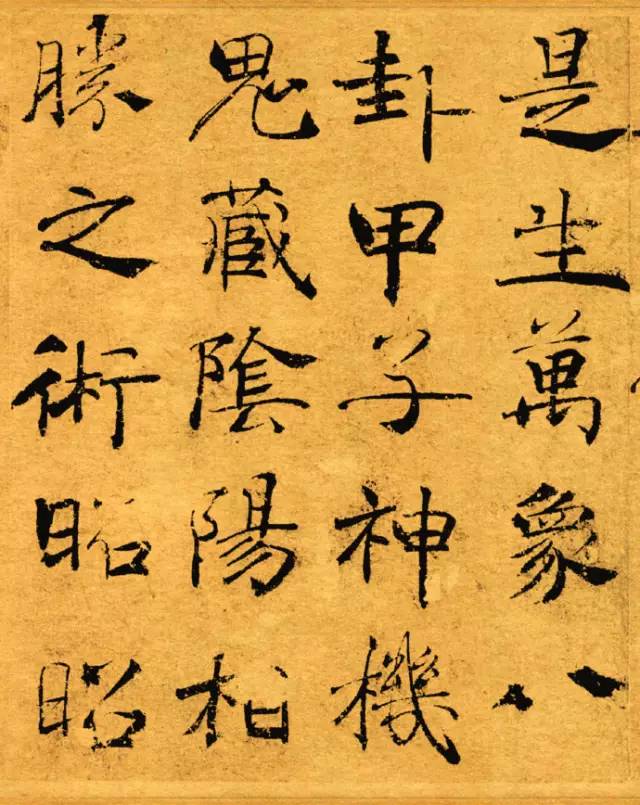 是生萬象八
卦甲子神機
鬼藏陰陽相
勝之術昭昭